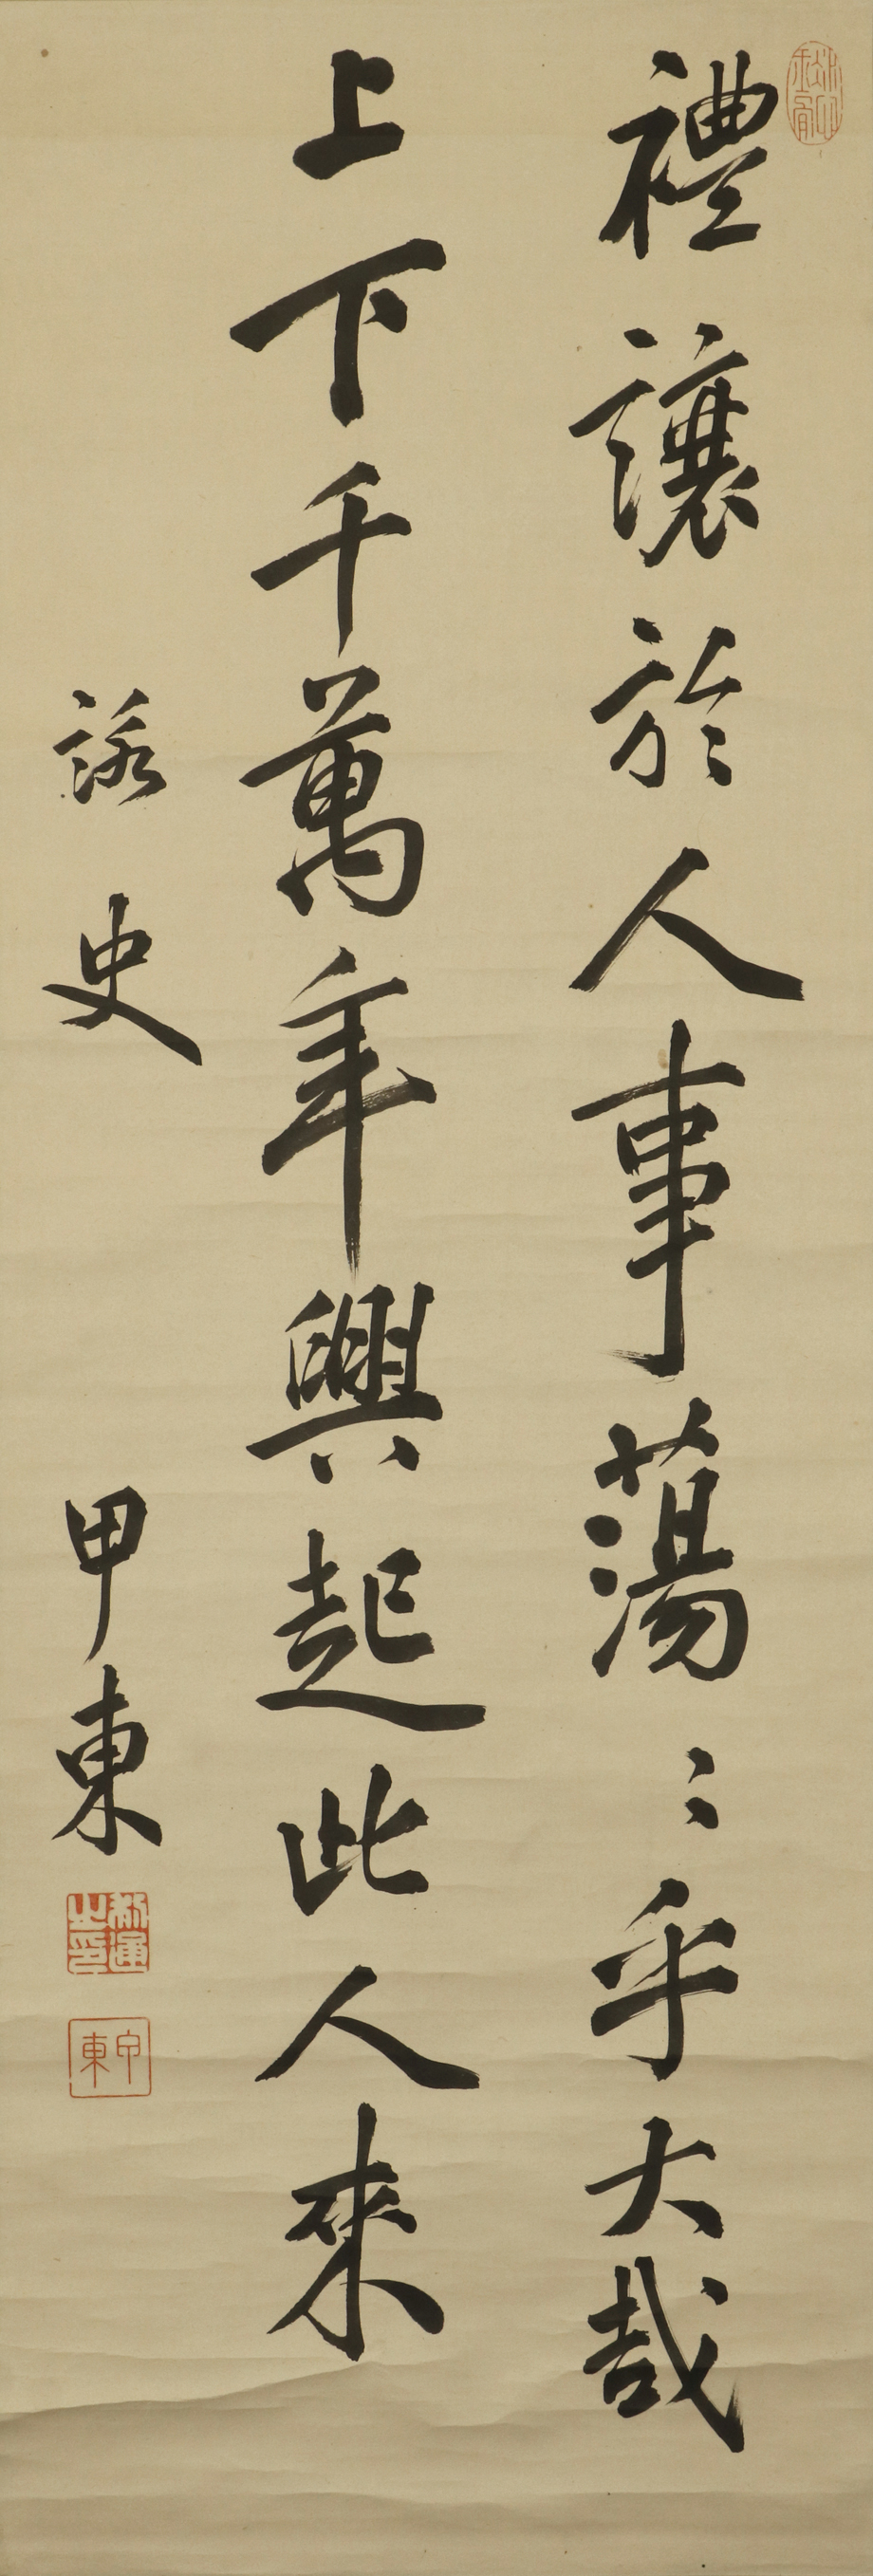 禮讓於人事蕩〻乎大哉
上下千萬年興起此人來
詠史 甲東
甲東